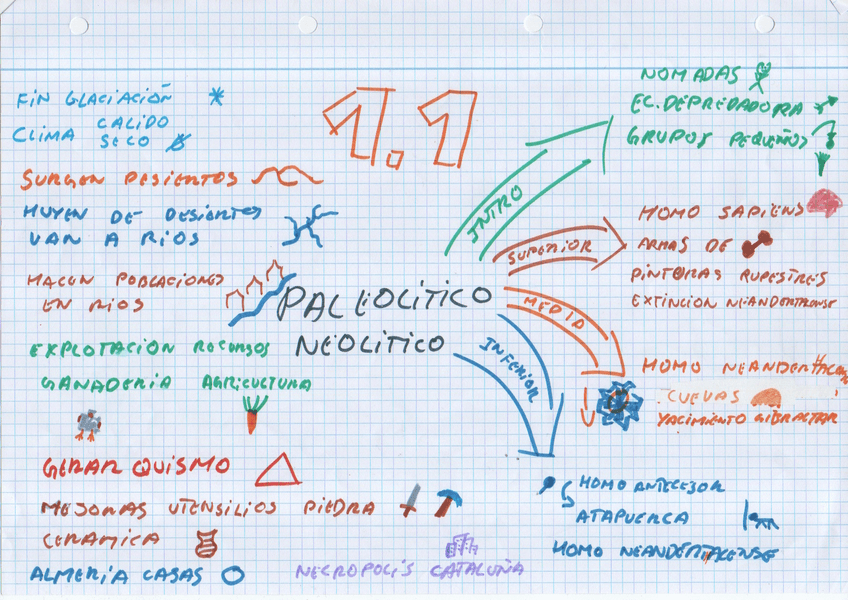 FIN GLACIACIOÑ
CLIMA CALIDO
SECO
SURGEN DESIERTOS
HUYEN DE DESIERTOS
VAN A RIOS
HACEN POBLACIONES
EN RIOS
EXPLOTACION RECURSOS
GANADERIA AGRICULTURA
GERARQUISMO
MEJORAS UTENSILIOS PIEDRA
CERAMICA
ALMERIA CASAS
NECROPOLIS CATALUÑA
1.1
PALEOLITICO
NEOLITICO
INTRO
NOMADAS
EC. DEPREDADORA
GRUPOS PEQUEÑOS
SUPERIOR
HOMO SAPIENS
ARMAS DE
PINTURAS RUPESTRES
EXTINCION NEANDERTALENSE
MEDIA
HOMO
CUEVAS
YACIMIENTO GIBRALTAR
INFERIOR
HOMO ANTECESOR
ATAPUERCA
HOMO NEANDERTALENSE